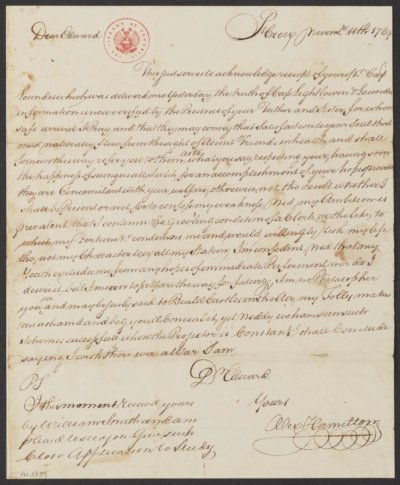 St Croix Novemr. 11th 1769
Dear Edward
This just serves to acknowledge receipt of yours pr. Cap
Lowndes which was delivered me Yesterday. The truth of Cap Lightbourn & Lowndes
information is now verifyed by the Presence of your Father and Sister for whose
safe arrival I Pray, and that they may convey that Satisfaction to your Soul that
must naturally flow from the sight of Absent Friends in health, and shall
for news this way refer you to them. What you say respecting your having soon
the happiness of seeing us all, I wish for an accomplishment of your hopes provided
they are Concomitant with your welfare, otherwise not, tho doubt whether I
shall be Present or not for to confess my weakness, Ned, my Ambition is
prevalent that I contemn the grov'ling condition of a Clerk or the like to
which my Fortune &c. condemns me and would willingly risk my life
tho' not my Character to exalt my Station. Im confident, Ned that my
Youth excludes me from any hopes of immediate Preferment nor do I
desire it, but I mean to prepare the way for futurity. Im no Philosopher
you see and may be jusly said to Build Castles in the Air. my Folly makes
me ashamd and beg youll Conceal it, yet Neddy we have seen such
Schemes successfull when the Projector is Constant I shall Conclude
saying I wish there was a War. I am
Dr Edward
Yours
Alexr Hamilton
PS
I this moment receivd yours
by William Smith and am
pleasd to see you Give such
Close Application to Study